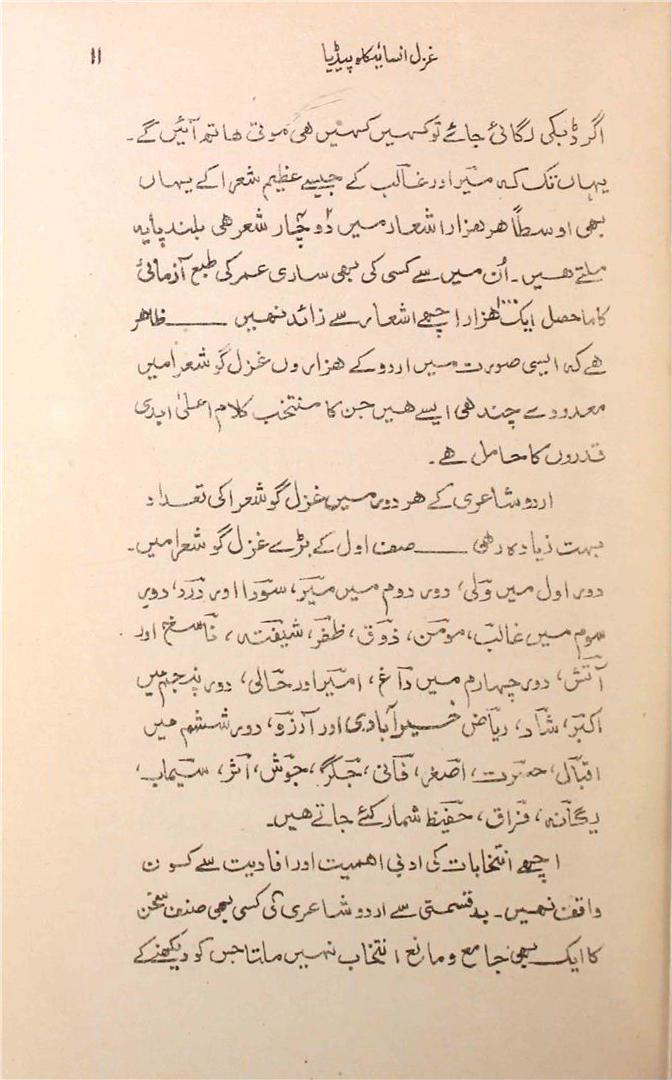 غزل انسائیکلوپیڈیا ۱۱
اگر ڈبکی لگائی جائے تو کہیں کہیں ھی موتی ھاتھ آئیں گے۔
یہاں تک کہ میر اور غالب کے جیسے عظیم شعرا کے یہاں
بھی اوسطاً ھر ھزار اشعار میں دو چار شعر ھی بلند پایہ
ملتے ھیں۔ اُن میں سے کسی کی بھی ساری عمر کی طبع آزمائی
کا ماحصل ایک ھزار اچھے اشعار سے زائد نہیں ــــــ ظاھر
ھے کہ ایسی صورت میں اردو کے ھزاروں غزل گو شعرا میں
معدودے چند ھی ایسے ھیں جن کا منتخب کلام اعلیٰ ابدی
قدروں کا حامل ھے۔
اردو شاعری کے ھر دور میں غزل گو شعرا کی تعداد
بہت زیادہ رھی ــــــ صف اول کے بڑے غزل گو شعرا میں۔
دور اول میں ولی، دور دوم میں میر، سودا اور درد، دور
سوم میں غالب، مومن، ذوق، ظفر، شیفتہ، ناسخ اور
آتش، دور چہارم میں داغ، امیر اور حالی، دور پنجم میں
اکبر، شاد، ریاض خیرآبادی اور آرزو، دور ششم میں
اقبال، حسرت، اصغر، فانی، جگر، جوش، اثر، سیماب،
یگانہ، فراق، حفیظ شمار کئے جاتے ھیں۔
اچھے انتخابات کی ادبی اھمیت اور افادیت سے کون
واقف نہیں۔ بدقسمتی سے اردو شاعری کی کسی بھی صنف سخن
کا ایک بھی جامع و مانع انتخاب نہیں ملتا جس کو دیکھنے کے